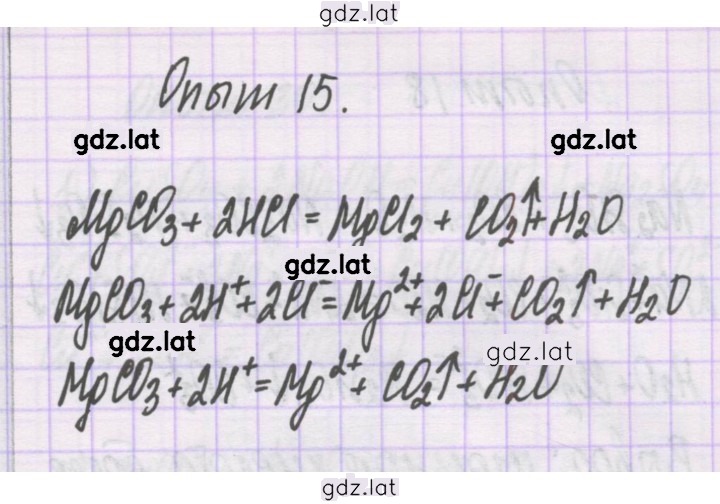 gdz.lat
Опыт 15.
gdz.lat gdz.lat
MgCO₃ + 2HCl = MgCl₂ + CO₂↑ + H₂O
gdz.lat
MgCO₃ + 2H⁺ + 2Cl⁻ = Mg²⁺ + 2Cl⁻ + CO₂↑ + H₂O
gdz.lat gdz.lat
MgCO₃ + 2H⁺ = Mg²⁺ + CO₂↑ + H₂O
gdz.lat